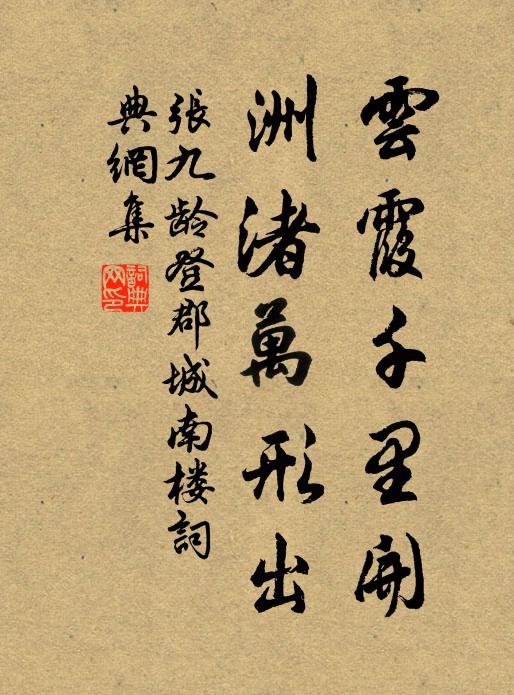 雲霞千里開
洲渚萬形出
張九龄登郡城南楼詞
典網集
詞典网印